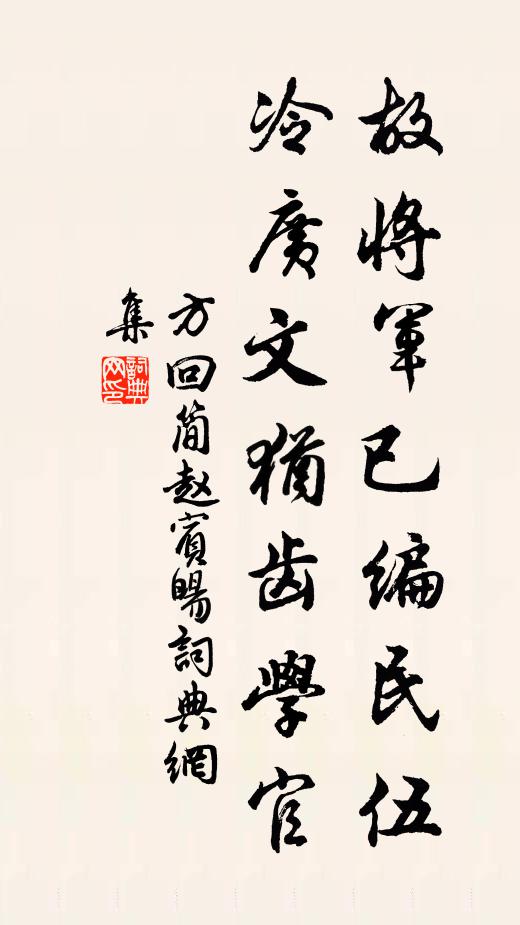 故將軍已编民伍
冷廣文猶齿學官
方回简赵賓暘詞典網
集
詞典
网印